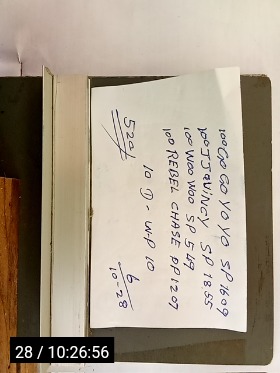 100 GO GO YO YO SP 1609
100 JJ QUINCY SP 1855
100 WOO WOO SP 549
100 REBEL CHASE PP 1207
10 D - W-P 10
520/
6
10-28
28 / 10:26:56